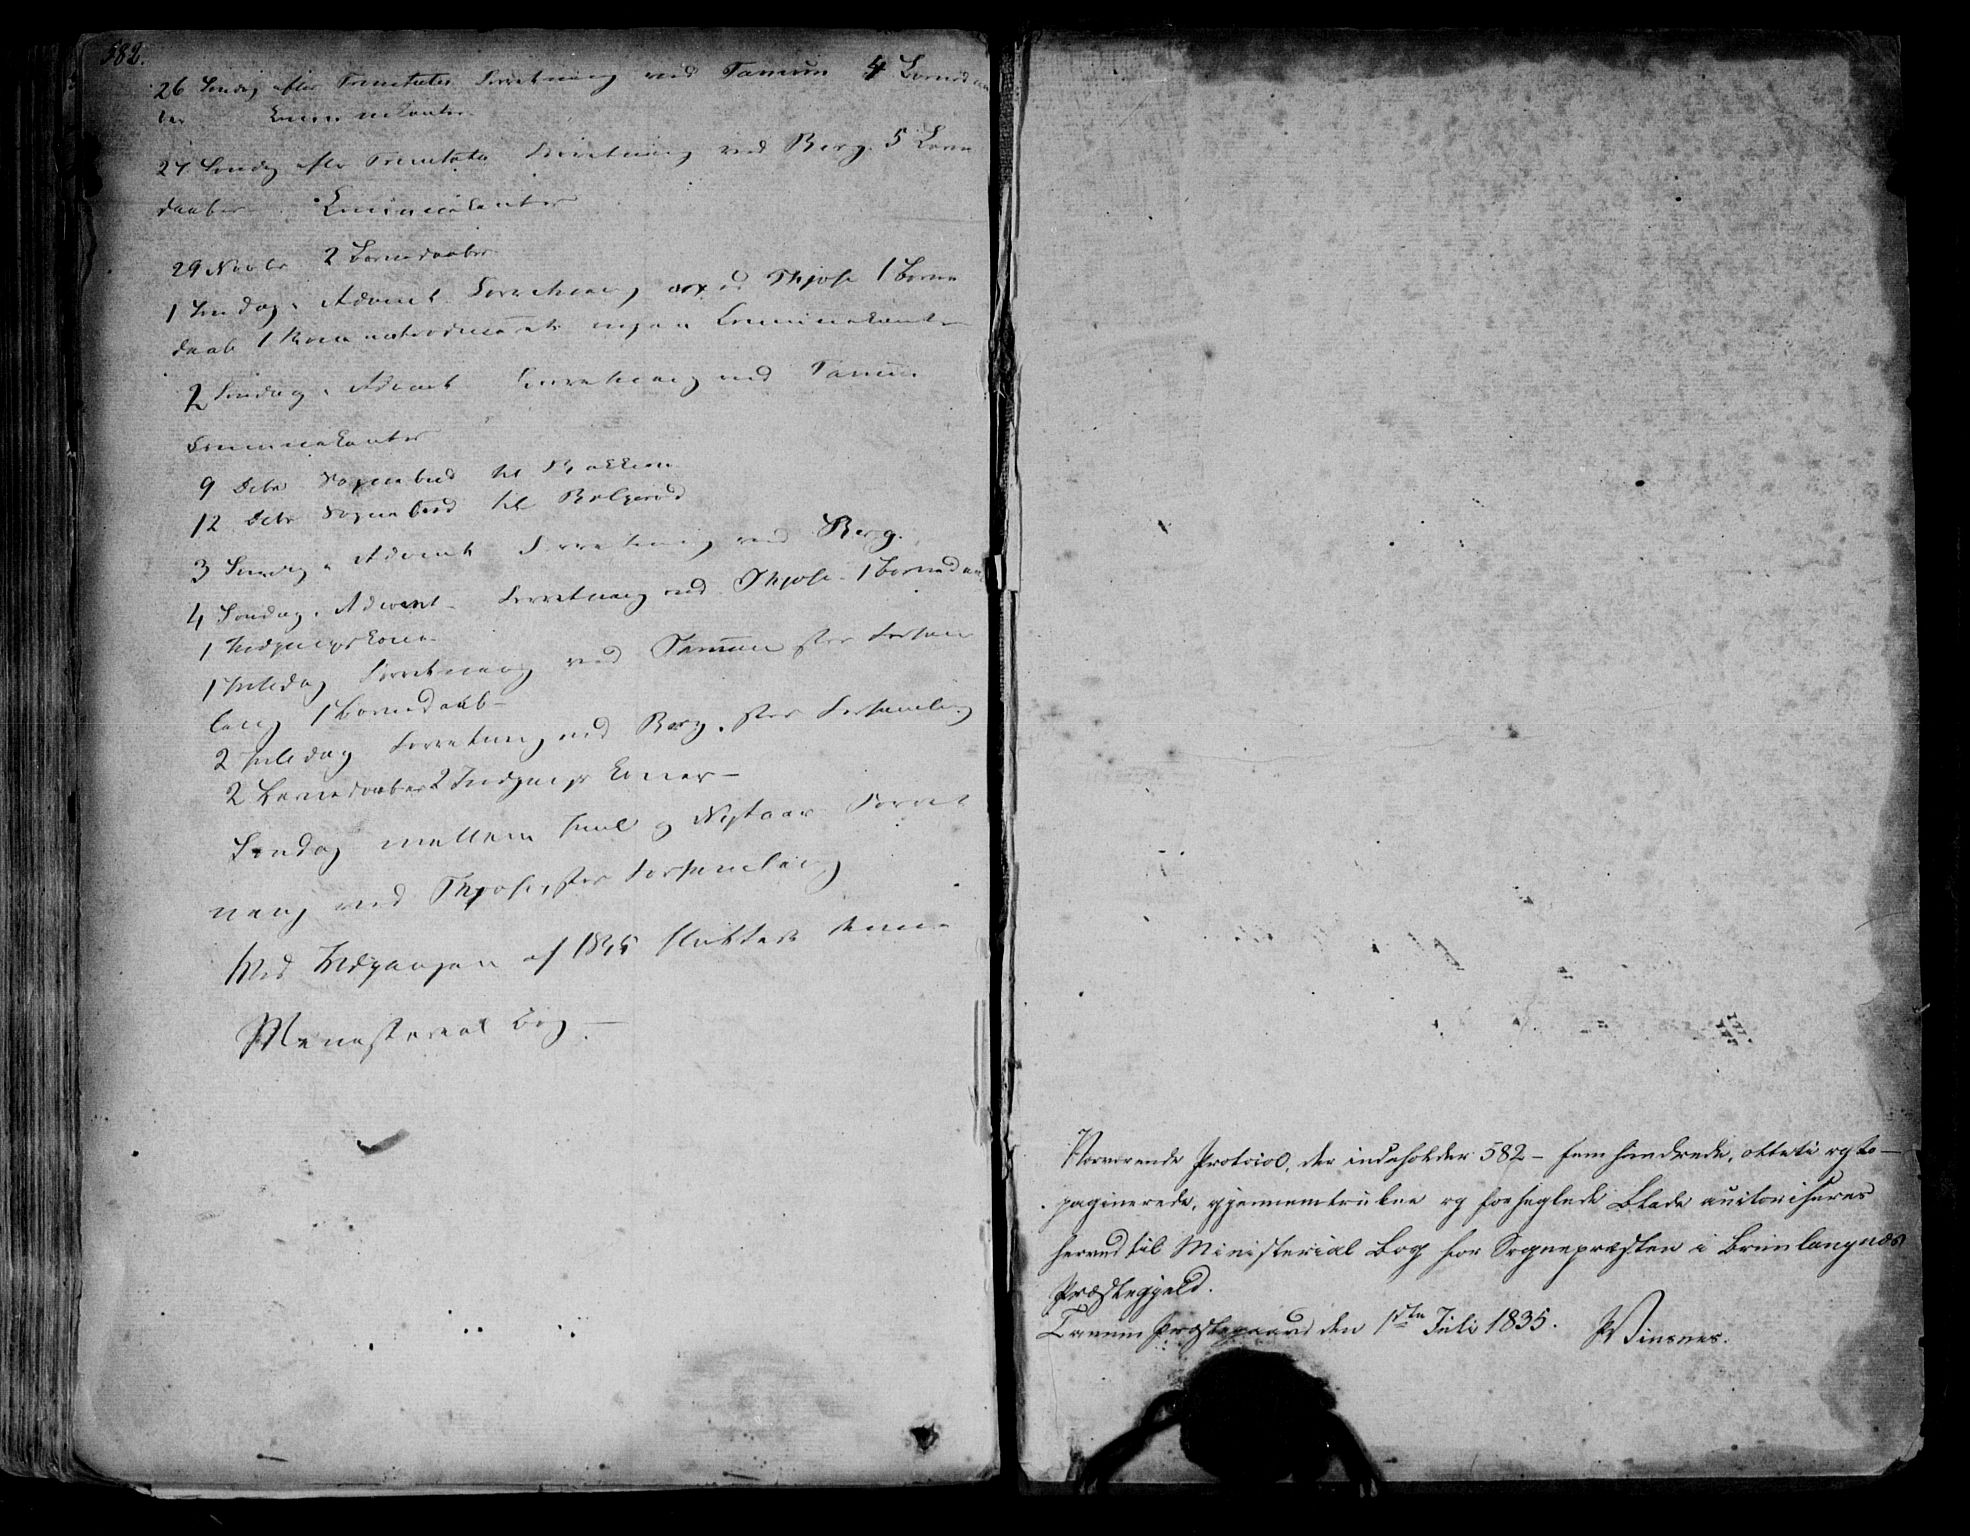 582.
26 Søndag efter Trinitatis Forretning ved Tanum 4 Barneda
ber Communicanter
27 Søndag efter Trinitatis Forretning ved Berg. 5 Barne
daaber Communicanter
29 Novbr 2 Barnedaaber
1 Søndag i Advent Forretning ved Thjose 1 Barne
daab 1 ingen Communicanter
2 Søndag i Advent Forretning ved Tanum
Communicanter
9 Debr Sognebud til Bakken
12 Debr Sognebud til
3 Søndag i Advent Forretning ved Berg.
4 Søndag i Advent Forretning ved Thjose - 1 Barnedaab
1 Indgangskone
1 Juledag Forretning ved Tanum stor Forsam
ling 1 Barnedaab -
2 Juledag Forretning ved Berg. stor Forsamling
2 Barnedaaber 2 Indgangskoner -
Søndag mellem Juul og Nytaar Forret
ning ved Thjose, stor Forsamling
Med Indgangen af 1845 sluttes denne
Ministerial Bog -
Nærværende Protocol, der indeholder 582 - fem hundrede, otteti og to -
paginerede, gjennemtrukne og forseglede Blade auctoriseres
herved til Ministerial Bog for Sognepræsten i Brunlangnæs
Præstegjeld.
Tanum Præstegaard den 1ste Juli 1835. Winsnes.